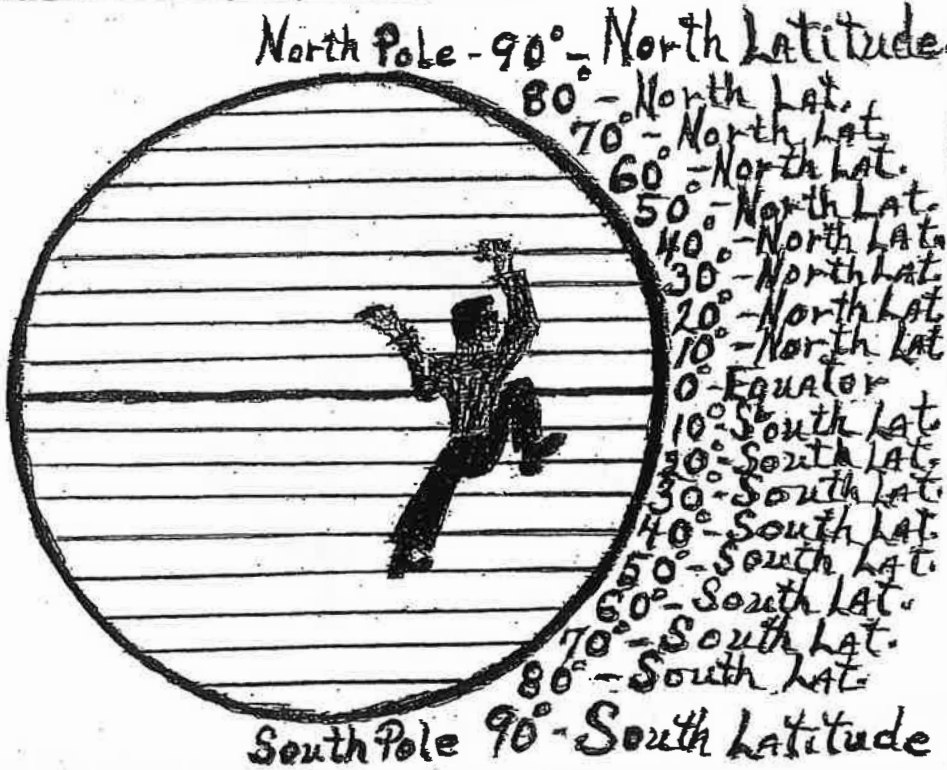 North Pole - 90° - North Latitude
80° - North Lat.
70° - North Lat.
60° - North Lat.
50° - North Lat.
40° - North Lat.
30° - North Lat.
20° - North Lat
10° - North Lat
0° - Equator
10° - South Lat.
20° - South Lat.
30° - South Lat.
40° - South Lat.
50° - South Lat.
60° - South Lat.
70° - South Lat.
80° - South Lat.
South Pole 90° - South Latitude